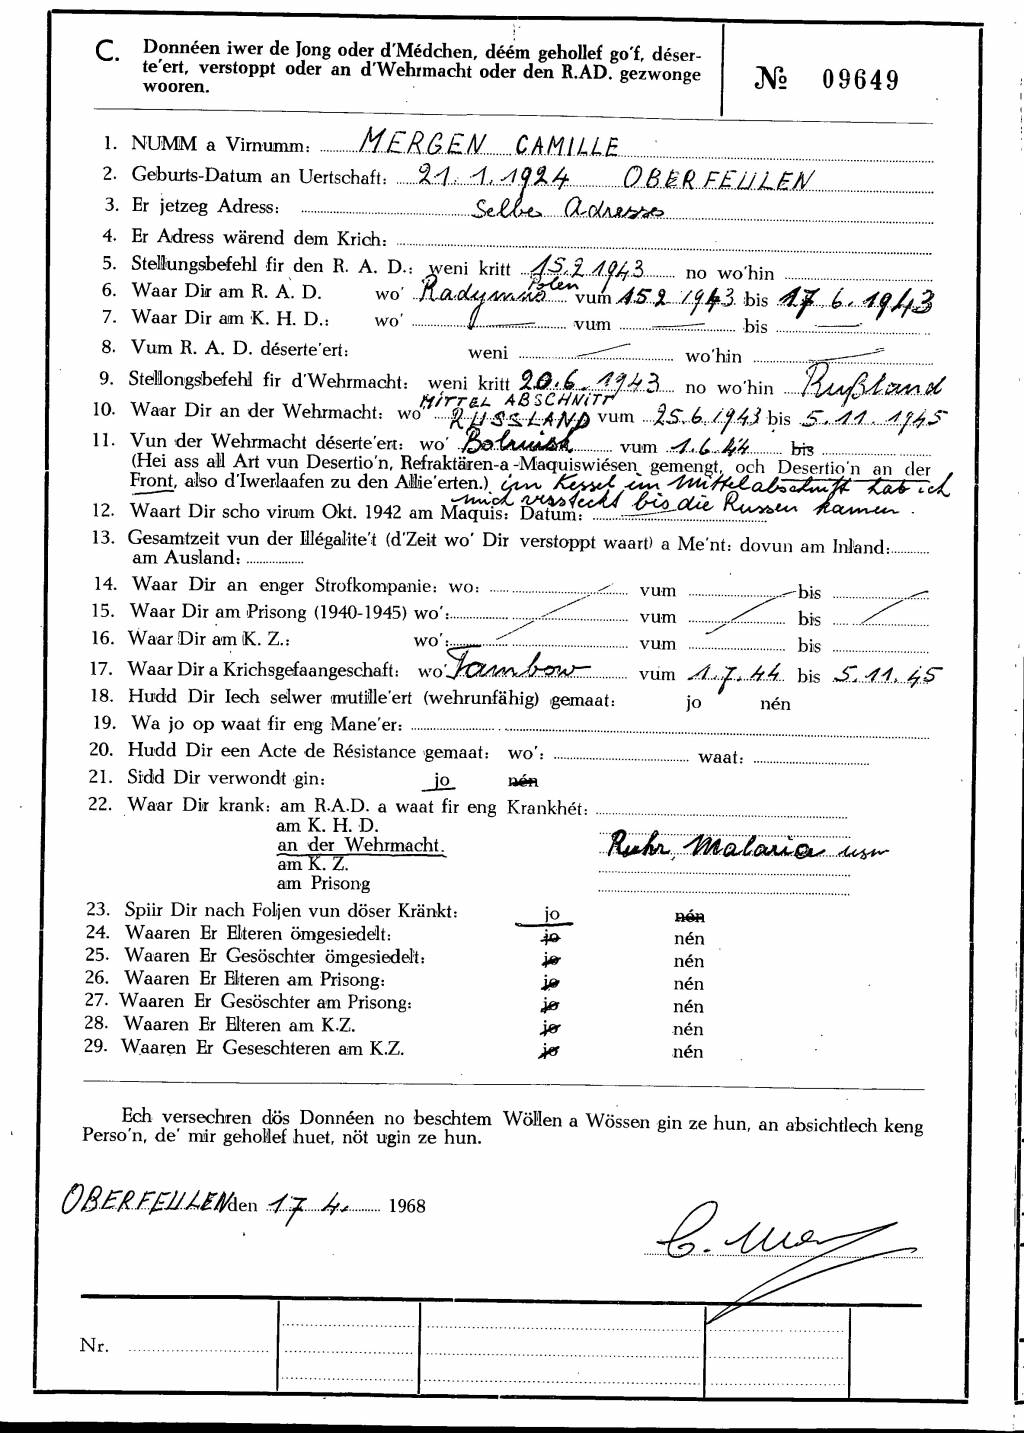 C. Donnéen iwer de Jong oder d'Médchen, déém gehollef go'f, déser-
te'ert, verstoppt oder an d'Wehrmacht oder den R.AD. gezwonge
wooren.
№ 09649
1. NUMM a Virnumm: MERGEN CAMILLE
2. Geburts-Datum an Uertschaft: 21.1.1924 OBERFEULEN
3. Er jetzeg Adress: Selbe Adresse
4. Er Adress wärend dem Krich:
5. Stellungsbefehl fir den R. A. D.: weni kritt 15.2 1943 no wo'hin
Polen
6. Waar Dir am R. A. D. wo' Radymno vum 15 2 1943 bis 17 6. 1943
7. Waar Dir am K. H. D.: wo' vum bis
8. Vum R. A. D. déserte'ert: weni wo'hin
9. Stellongsbefehl fir d'Wehrmacht: weni kritt 20.6.1943 no wo'hin Rußland
MITTEL ABSCHNITT
10. Waar Dir an der Wehrmacht: wo' RUSSLAND vum 25.6.1943 bis 5.11.1945
11. Vun der Wehrmacht déserte'ert: wo' Bobruisk vum 1.6.44 bis
(Hei ass all Art vun Desertio'n, Refraktären-a-Maquiswiésen gemengt, och Desertio'n an der
Front, also d'Iwerlaafen zu den Allie'erten.) im Kessel im Mittelabschnitt hab ich
mich versteckt bis die Russen kamen.
12. Waart Dir scho virum Okt. 1942 am Maquis: Datum:
13. Gesamtzeit vun der Illégalite't (d'Zeit wo' Dir verstoppt waart) a Me'nt: dovun am Inland:
am Ausland:
14. Waar Dir an enger Strofkompanie: wo: vum bis
15. Waar Dir am Prisong (1940-1945) wo': vum bis
16. Waar Dir am K. Z.: wo': vum bis
17. Waar Dir a Krichsgefaangeschaft: wo' Tambow vum 1.7.44 bis 5.11.45
18. Hudd Dir Iech selwer mutille'ert (wehrunfähig) gemaat: jo nén
19. Wa jo op waat fir eng Mane'er:
20. Hudd Dir een Acte de Résistance gemaat: wo': waat:
21. Sidd Dir verwondt gin: jo nén
22. Waar Dir krank: am R.A.D. a waat fir eng Krankhét:
am K. H. D.
an der Wehrmacht. Ruhr, Malaria usw
am K. Z.
am Prisong
23. Spiir Dir nach Foljen vun döser Kränkt: jo nén
24. Waaren Er Elteren ömgesiedelt: jo nén
25. Waaren Er Gesöschter ömgesiedelt: jo nén
26. Waaren Er Elteren am Prisong: jo nén
27. Waaren Er Gesöschter am Prisong: jo nén
28. Waaren Er Elteren am K.Z. jo nén
29. Waaren Er Geseschteren am K.Z. jo nén
Ech versechren dös Donnéen no beschtem Wöllen a Wössen gin ze hun, an absichtlech keng
Perso'n, de' mir gehollef huet, nöt ugin ze hun.
OBERFEULEN den 17 4. 1968
Nr.